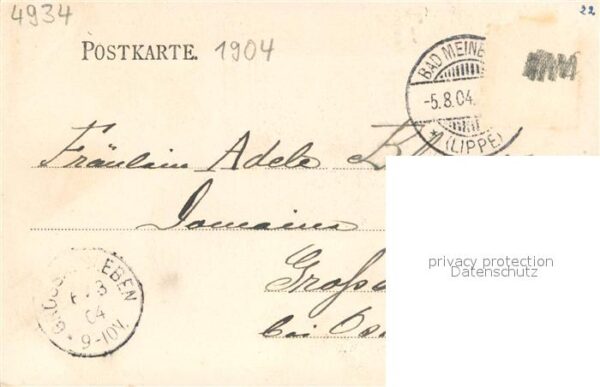 4934
22
POSTKARTE. 1904
BAD MEINB
-5.8.04.
* (LIPPE)
Fräulein Adele
Domaine
Gross
bei Os
GROSS EBEN
8
04
* 9-10V.
privacy protection
Datenschutz